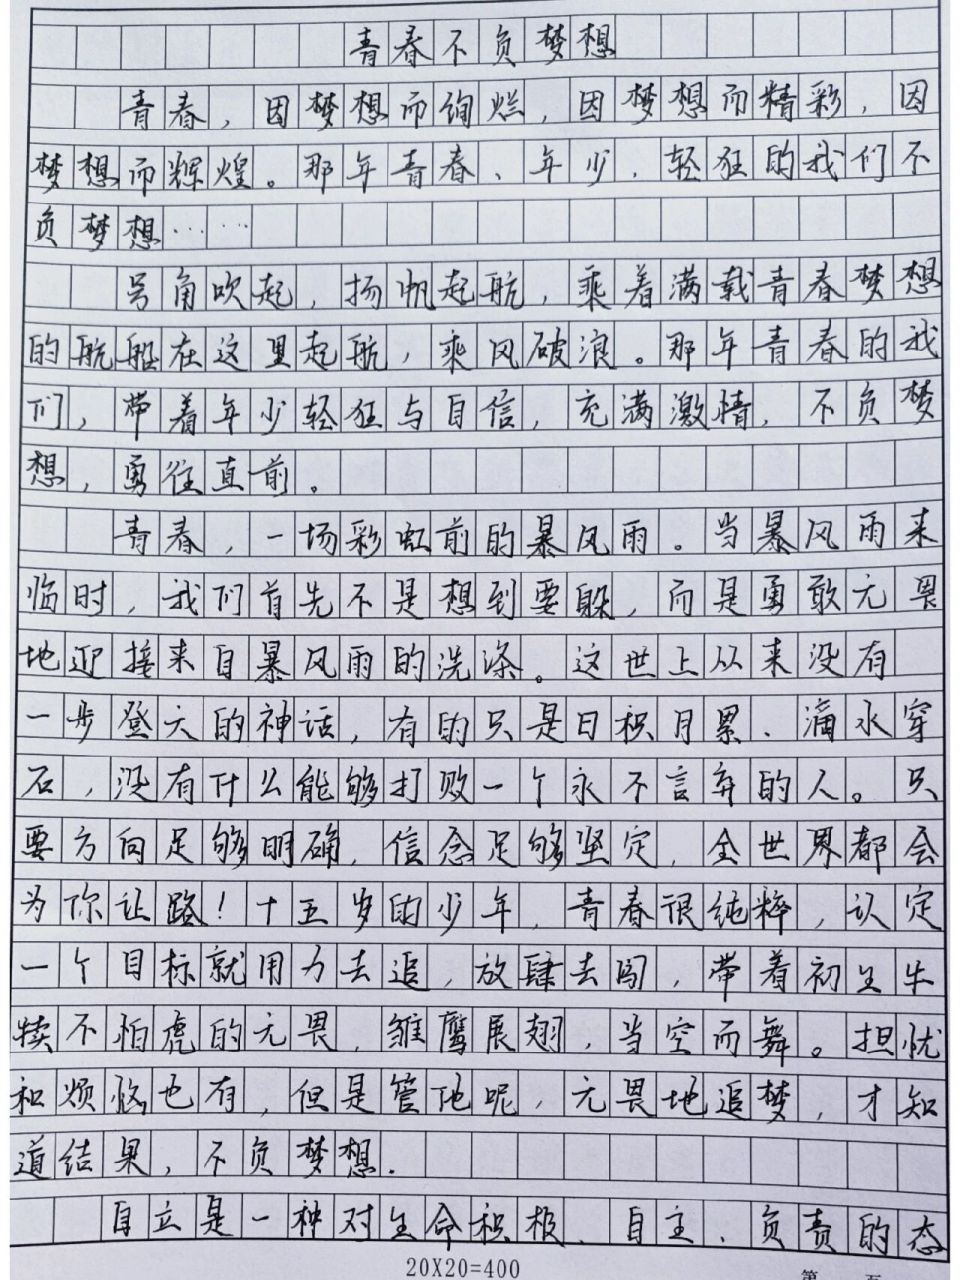 青春不负梦想
青春，因梦想而绚烂，因梦想而精彩，因
梦想而辉煌。那年青春、年少、轻狂的我们不
负梦想……
号角吹起，扬帆起航，乘着满载青春梦想
的航船在这里起航，乘风破浪。那年青春的我
们，带着年少轻狂与自信，充满激情，不负梦
想，勇往直前。
青春，一场彩虹前的暴风雨。当暴风雨来
临时，我们首先不是想到要躲，而是勇敢无畏
地迎接来自暴风雨的洗涤。这世上从来没有
一步登天的神话，有的只是日积月累、滴水穿
石，没有什么能够打败一个永不言弃的人。只
要方向足够明确，信念足够坚定，全世界都会
为你让路！十五岁的少年，青春很纯粹，认定
一个目标就用力去追，放肆去闯，带着初生牛
犊不怕虎的无畏，雏鹰展翅，当空而舞。担忧
和烦恼也有，但是管他呢，无畏地追梦，才知
道结果，不负梦想.
自立是一种对生命积极、自主、负责的态
20X20=400
第 页